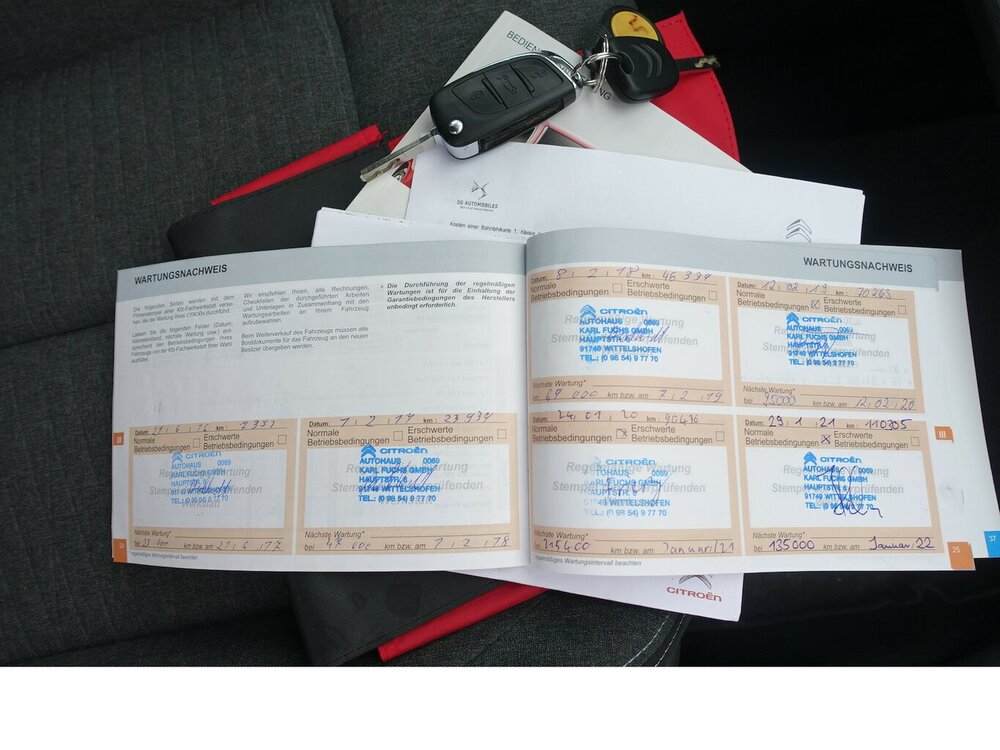 BEDIEN
NG
DS AUTOMOBILES
Kosten einer Bahnfahrkarte 1. Klasse
WARTUNGSNACHWEIS
Die folgenden Seiten werden mit dem
Firmenstempel einer Kfz-Fachwerkstatt verse-
hen, die die Wartung Ihres CITROËN durchführt.
Lassen Sie die folgenden Felder (Datum,
Kilometerstand, nächste Wartung usw.) ent-
sprechend den Betriebsbedingungen Ihres
Fahrzeugs von der Kfz-Fachwerkstatt Ihrer Wahl
ausfüllen.
Wir empfehlen Ihnen, alle Rechnungen,
Checklisten der durchgeführten Arbeiten
und Unterlagen in Zusammenhang mit den
Wartungsarbeiten an Ihrem Fahrzeug
aufzubewahren.
Beim Weiterverkauf des Fahrzeugs müssen alle
Borddokumente für das Fahrzeug an den neuen
Besitzer übergeben werden.
Die Durchführung der regelmäßigen
Wartungen ist für die Einhaltung der
Garantiebedingungen des Herstellers
unbedingt erforderlich.
Datum: km:
Normale Erschwerte
Betriebsbedingungen Betriebsbedingungen
CITROËN
AUTOHAUS 0069
KARL FUCHS GMBH
HAUPTSTR. 6
91749 WITTELSHOFEN
TEL.: (0 98 54) 9 77 70
Nächste Wartung*
bei km bzw. am 21.6.17
Datum: 7.2.17 km: 23939
Normale Erschwerte
Betriebsbedingungen Betriebsbedingungen
CITROËN
AUTOHAUS 0069
KARL FUCHS GMBH
HAUPTSTR. 6
91749 WITTELSHOFEN
TEL.: (0 98 54) 9 77 70
Nächste Wartung*
bei 47 000 km bzw. am 7.2.18
*regelmäßiges Wartungsintervall beachten
III
24
WARTUNGSNACHWEIS
Datum: 8.2.18 km: 46399
Normale Erschwerte
Betriebsbedingungen Betriebsbedingungen
CITROËN
AUTOHAUS 0069
KARL FUCHS GMBH
HAUPTSTR. 6
91749 WITTELSHOFEN
TEL.: (0 98 54) 9 77 70
Nächste Wartung*
bei km bzw. am 7.2.19
Datum: 12.02.19 km: 70263
Normale Erschwerte
Betriebsbedingungen Betriebsbedingungen
CITROËN
AUTOHAUS 0069
KARL FUCHS GMBH
HAUPTSTR. 6
91749 WITTELSHOFEN
TEL.: (0 98 54) 9 77 70
Nächste Wartung*
bei 95000 km bzw. am 12.02.20
Datum: 24.01.20 km: 90436
Normale Erschwerte
Betriebsbedingungen Betriebsbedingungen
CITROËN
AUTOHAUS 0069
KARL FUCHS GMBH
HAUPTSTR. 6
91749 WITTELSHOFEN
TEL.: (0 98 54) 9 77 70
Nächste Wartung*
bei km bzw. am Januar/21
Datum: 29.1.21 km: 110305
Normale Erschwerte
Betriebsbedingungen Betriebsbedingungen
CITROËN
AUTOHAUS 0069
KARL FUCHS GMBH
HAUPTSTR. 6
91749 WITTELSHOFEN
TEL.: (0 98 54) 9 77 70
Nächste Wartung*
bei 135000 km bzw. am Januar 22
*regelmäßiges Wartungsintervall beachten
III
25
37
CITROËN